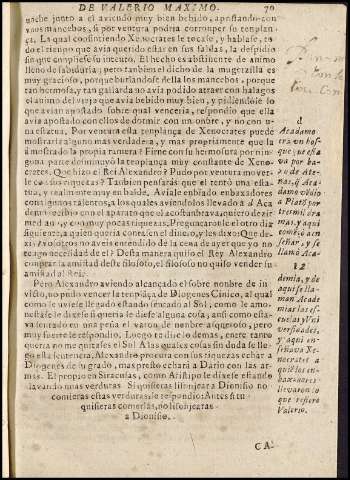 DE VALERIO MAXIMO. 70
nache junto a el aviendo muy bien bebido, apostando con
unos mancebos, si por ventura podria corromper su templan-
ça. La qual consintiendo Xenocrates le tocase, y hablase, to-
do el tiempo que avia querido estar en sus faldas, la despidio
sin que cumpliese su intento. El hecho es abstinente de animo
lleno de sabiduria; pero tambien el dicho de la mugerzilla es
muy gracioso, porque burlandose della los mancebos, porque
tan hermosa, y tan gallarda no avia podido atraer con halagos
el animo del viejo que avia bebido muy bien, y pidiendole lo
que avian apostado sobre qual venceria, respondio que ella
avia apostado con ellos de dormir con un onbre, y no con u-
na estatua. Por ventura esta tenplança de Xenocrates puede
mostrarla alguno mas verdadera, y mas propriamente que la
a mostrado la propia ramera? Frine con su hermosura por nin-
guna parte diminuyò la tenplança muy constante de Xeno-
crates. Que hizo el Rei Alexandro? Pudo por ventura mover-
le con sus riquezas? Tambien pensaràs que el tentò una esta-
tua, y realmente muy en balde. Aviale enbiado enbaxadores
con algunos talentos, a los quales aviendolos llevado a
demia recibio con el aparato que el acostunbrava,
mado, y con muy pocas riquezas. Preguntaronle el otro dia
siguiente, a quien queria contase el dinero, y les dixo: Que de-
zis? Vosotros no aveis entendido de la cena de ayer que yo no
tengo necesidad de el? Desta manera quiso el Rey Alexandro
comprar la amistad deste filosofo, el filosofo no quiso vender su
amistad al Rei.
Pero Alexandro aviendo alcançado el sobre nonbre de in-
victo, no pudo vencer la templãça de Diogenes Cinico, al qual
como le uviese llegado estando sentado al Sol, como le amo-
nestase le dixese si queria le diese alguna cosa, ansi como esta-
va sentado en una peña el varon de nonbre asqueroso, pero
muy fuerte le respondio, Luego te dirè lo demas, entre tanto
querria no me quitases el Sol. A las quales cosas sin duda se lle-
go esta sentencia, Alexandro procura con sus riquezas echar a
Diogenes de su grado, mas presto echarà a Dario con las ar-
mas. El propio en Siracusas, como Aristipo le dixese estando
lavando unas verduras Si quisieras lisonjear a Dionisio no
comieras estas verduras, le respondio: Antes si tu
quisieras comerlas, no lisonjearas
a Dionisio.
d
Acadamo
era un bos-
que, que esta-
va por ba-
rio de Ate-
nas, q̃ Aca-
demo vẽdio
a Platõ por
tres mil dra
mas, y aqui
començò a en
señar, y se
llamò Aca-
12
demia, y de
aqui se lla-
man Acade
mias las es-
cuelas y Uni
versidades,
y aqui en-
señava Xe-
nocrates a
quiẽ los en-
baxadores
llevaron lo
que refiere
Valerio.
CA.